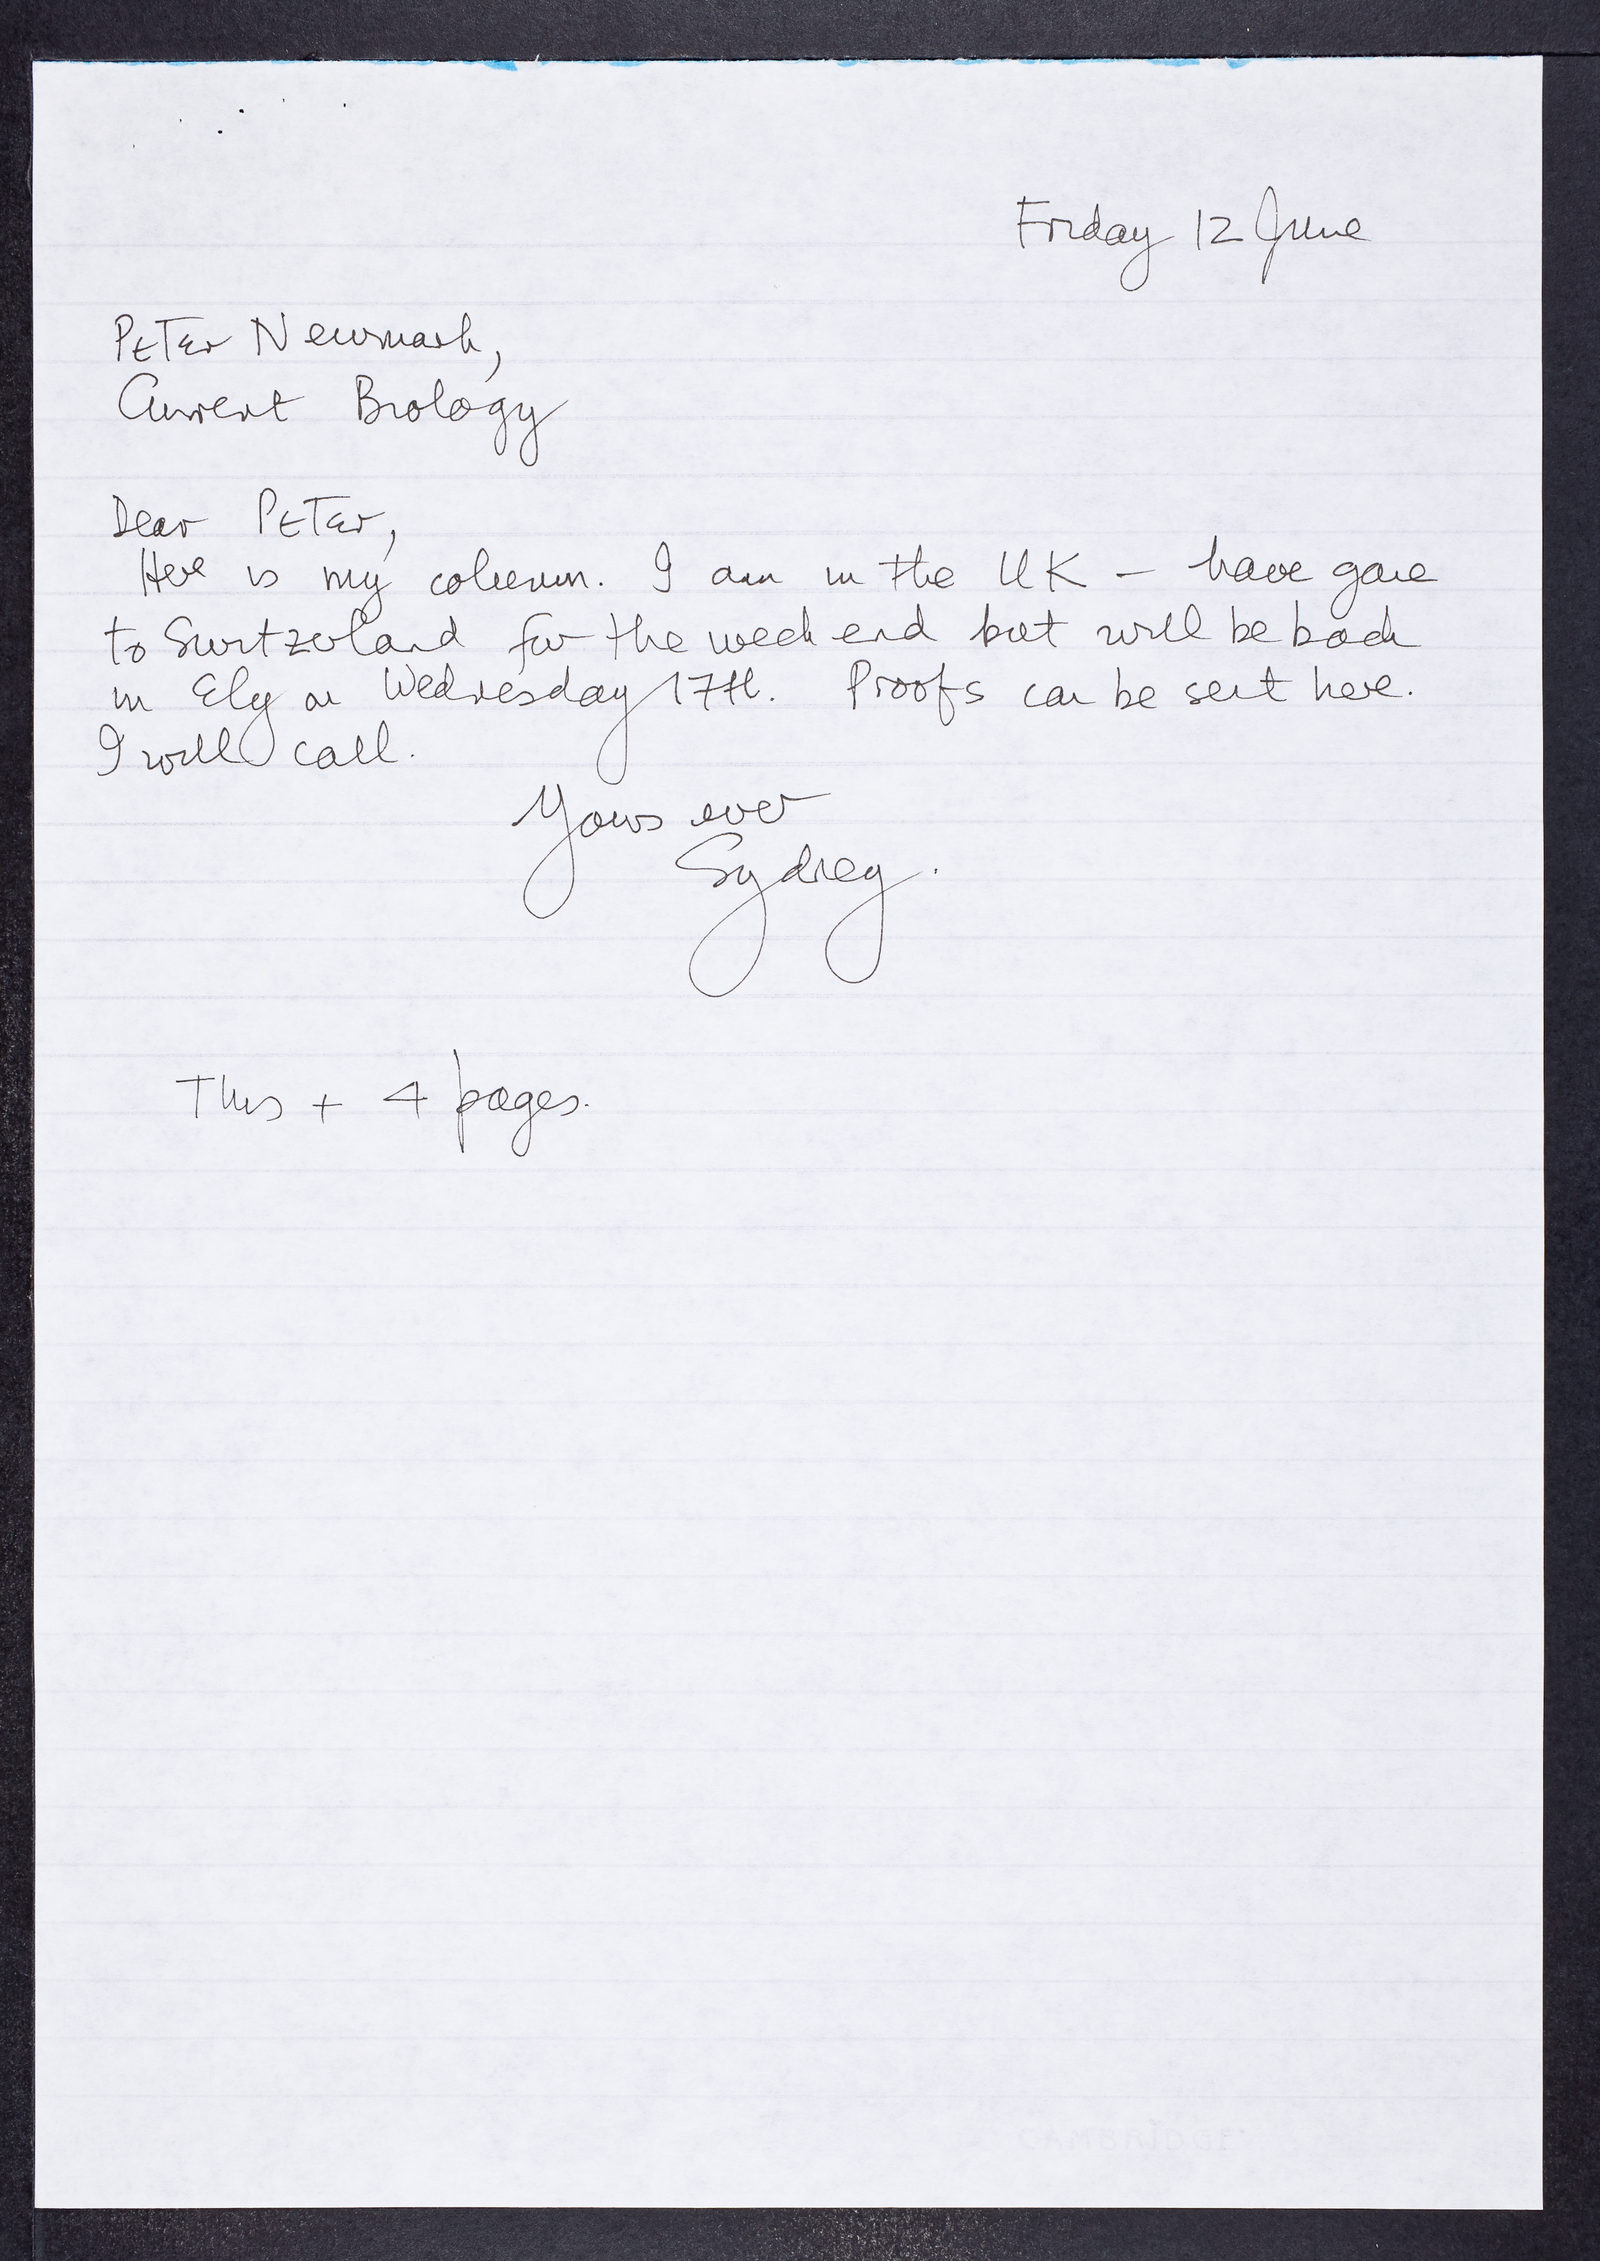 Friday 12 June
Peter Newmark,
Current Biology
Dear Peter,
Here is my column. I am in the UK – have gone
to Switzerland for the week end but will be back
in Ely on Wednesday 17th. Proofs can be sent here.
I will call.
Yours ever
Sydney.
This + 4 pages.